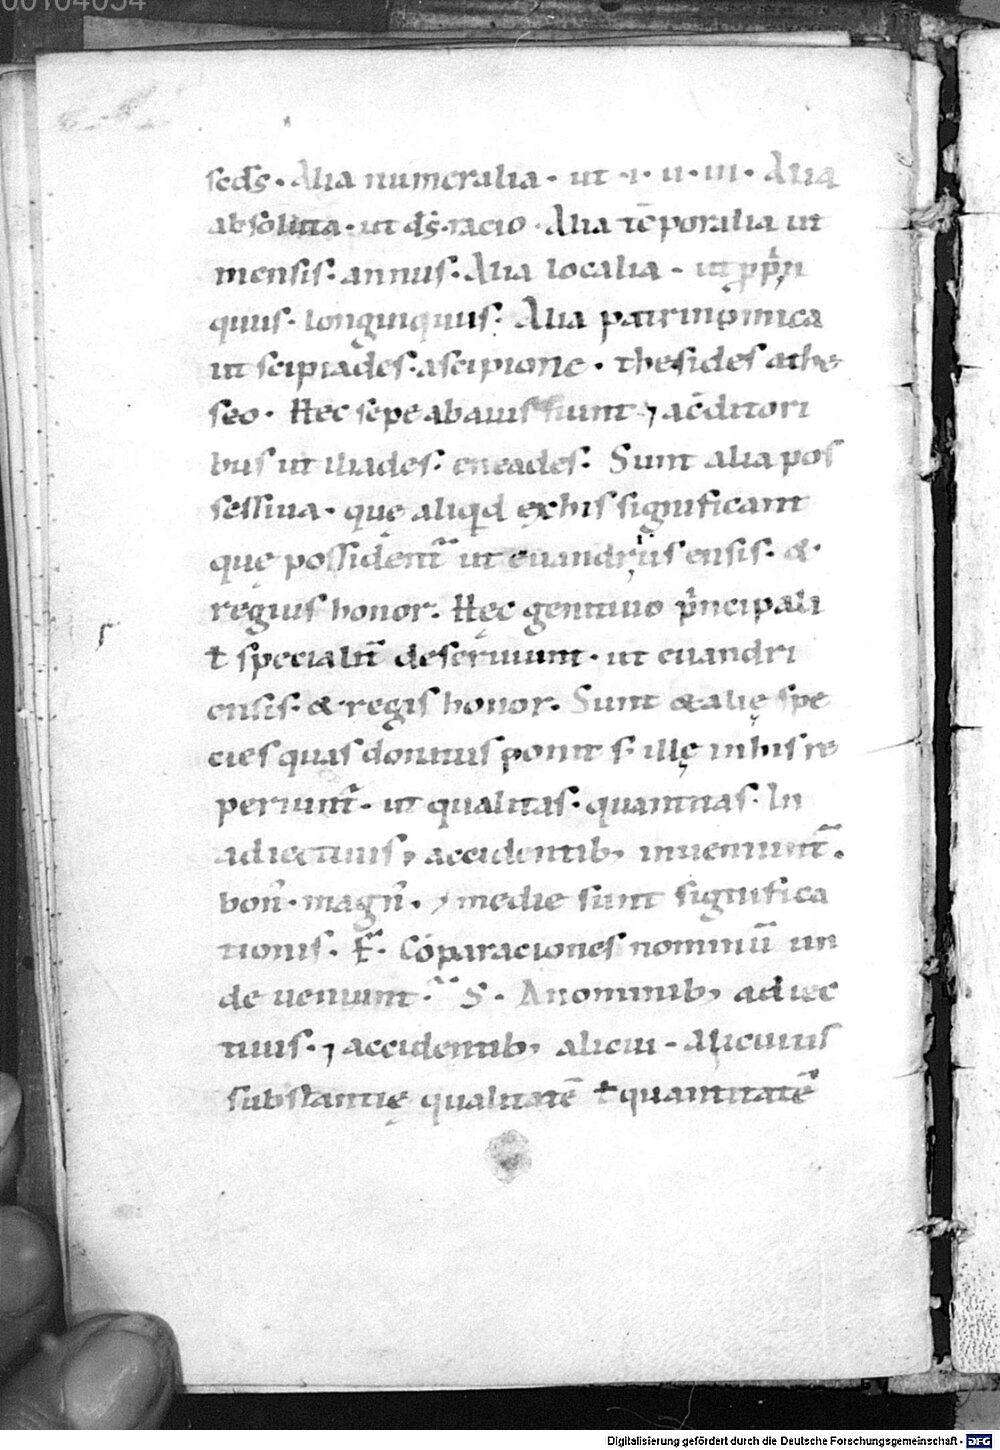 00104054
scds. Alia numeralia. ut .i. ii. iii. Alia
absoluta. ut ds̄. racio. Alia tēporalia ut
mensis. annus. Alia localia. ut ppin
quus. longinquus. Alia patrinomica
ut scipiades. ascipione. thesides athe
seo. Hec sepe abauis fiunt ⁊ acditori
bus ut iliades. eneades. Sunt alia pos
sessiua. quę aliqid exhis significant
quę possident̄ ut euandrius ensis. &
regius honor. Hęc genitiuo pⁱncipali
ł specialit̄ deseruiunt. ut euandri
ensis. & regis honor. Sunt & alię spe
cies quas donatus ponit s; illę inhis re
periunt̄. ut qualitas. quantitas. In
adiectiuis, accidentib; inueniunt̄.
bon̄. magn̄. ⁊ medie sunt significa
tionis. Cōparaciones nominū un
de ueniunt. S. Anominib; adiec
tiuis. ⁊ accidentib; alicui. alicuius
substantię qualitatē ł quantitatē
Digitalisierung gefördert durch die Deutsche Forschungsgemeinschaft - DFG